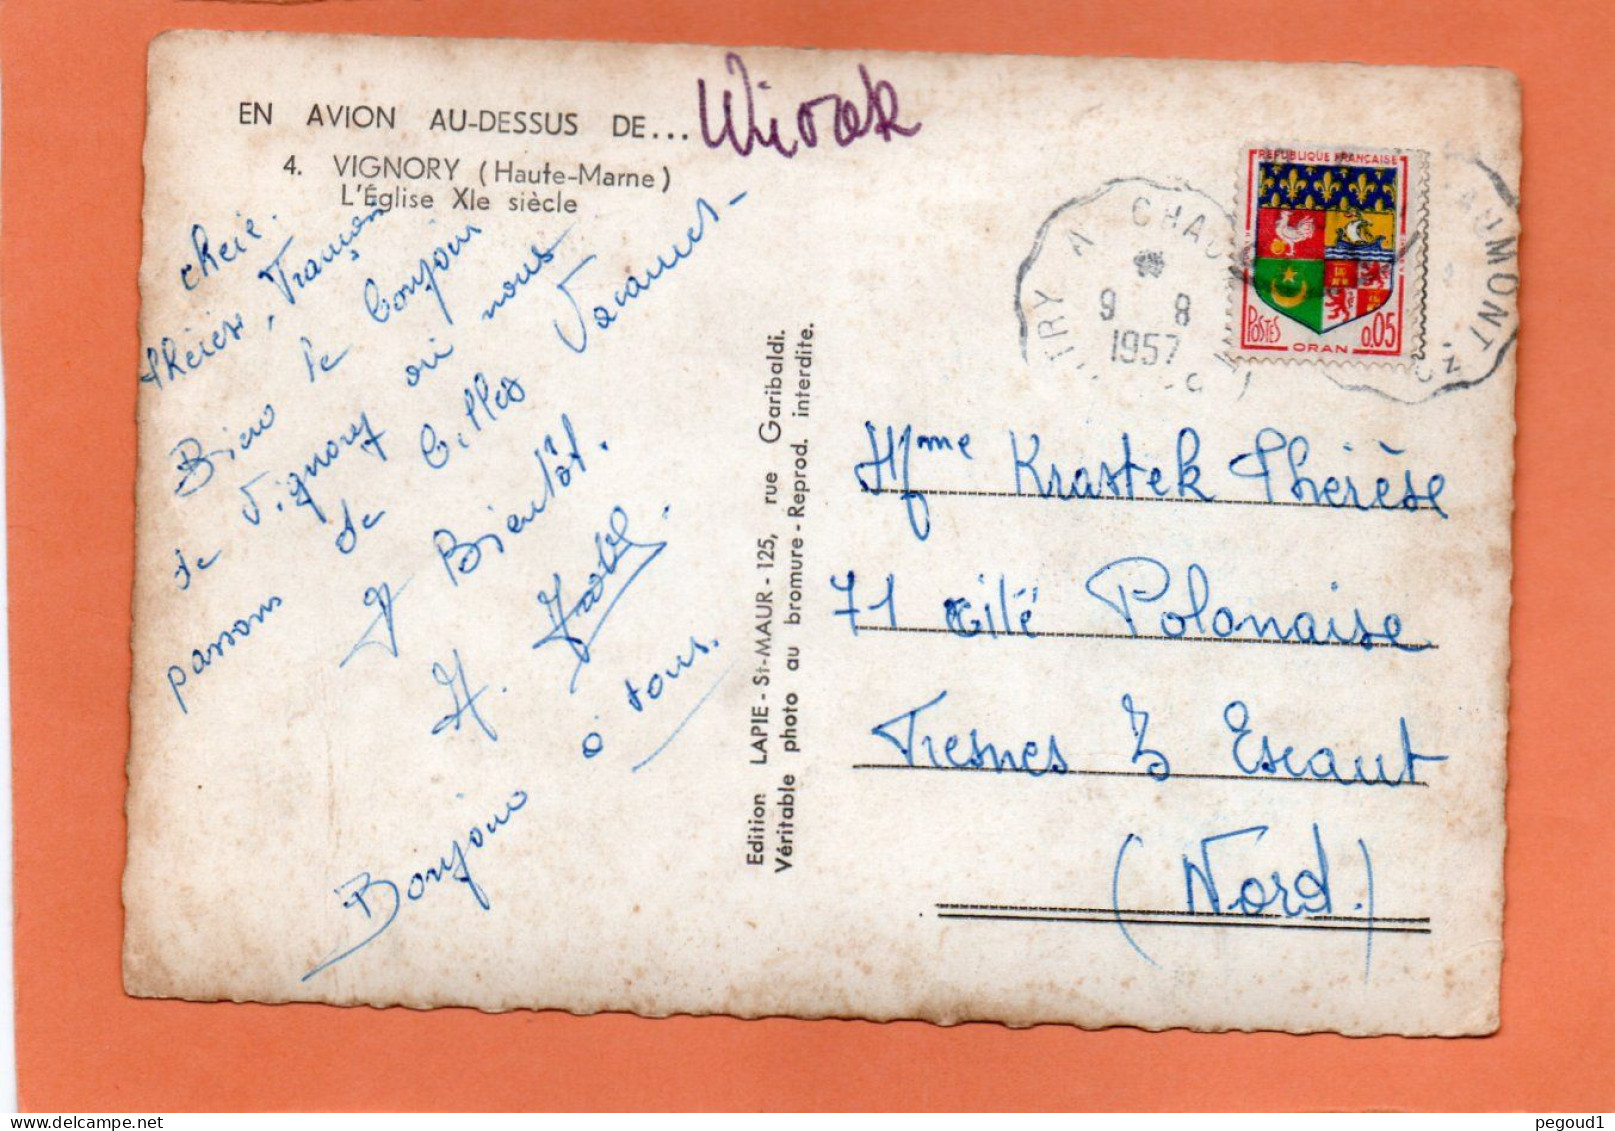 EN AVION AU-DESSUS DE...
4. VIGNORY (Haute-Marne)
L'Église XIe siècle
chère.
thérèse, Françon
Bien le bonjour
de Vignory où nous
passons de billes Vacances -
A Bientôt.
A.
Bonjour à tous.
Edition LAPIE - St-MAUR - 125, rue Garibaldi.
Véritable photo au bromure - Reprod. interdite.
CHAUMONT
9 8
1957
REPUBLIQUE FRANÇAISE
POSTES
ORAN
0.05
Mme Krastek Thérèse
71 cité Polonaise
Fresnes s/ Escaut
(Nord.)
pegoud1